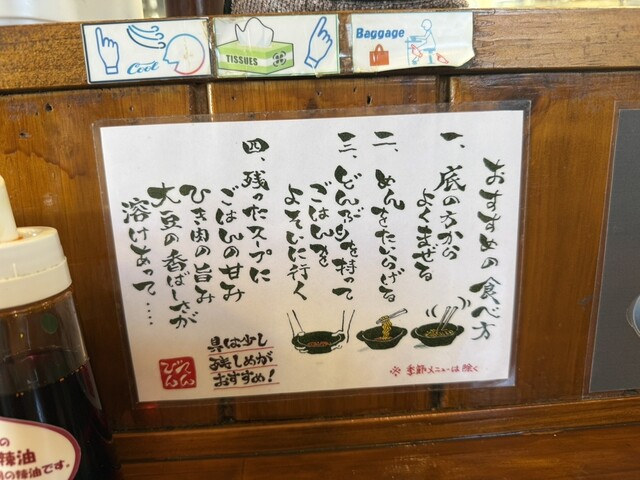 Cool
TISSUES
Baggage
おすすめの食べ方
一、底の方から
よくまぜる
二、めんをたいらげる
三、どんぶりを持って
ごはんを
よそいに行く
四、残ったスープに
ごはんの甘み
ひき肉の旨み
大豆の香ばしさが
溶けあって....
具は少し
残しめが
おすすめ!
※季節メニューは除く
の
辣油
の辣油です。